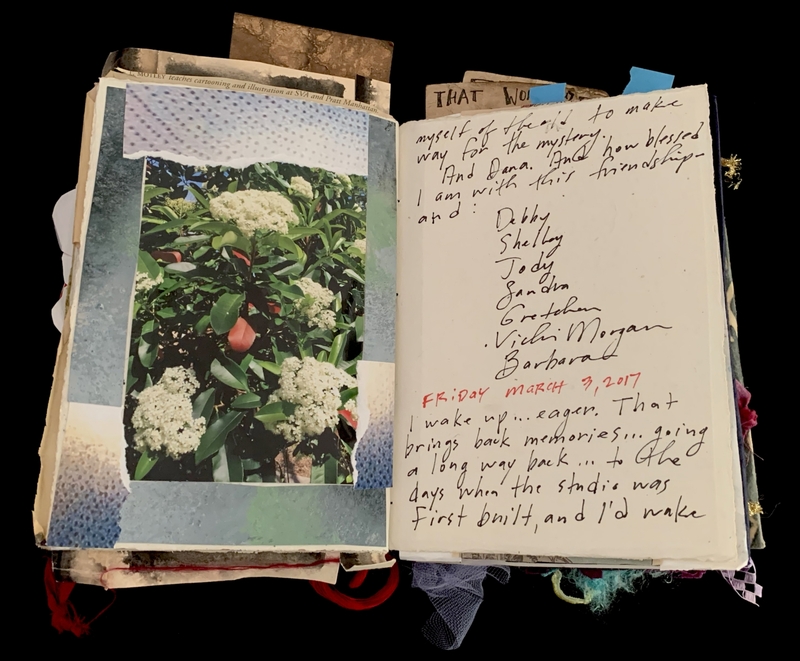 L. MOTLEY teaches cartooning and illustration at SVA and Pratt Manhattan
THAT WO
myself of the old to make
way for the mystery.
And Dana. And how blessed
I am with this friendship—
and:
Debby
Shelley
Jody
Sandra
Gretchen
Vicki Morgan
Barbara
FRIDAY MARCH 3, 2017
I wake up... eager. That
brings back memories... going
a long way back... to the
days when the studio was
first built, and I'd wake